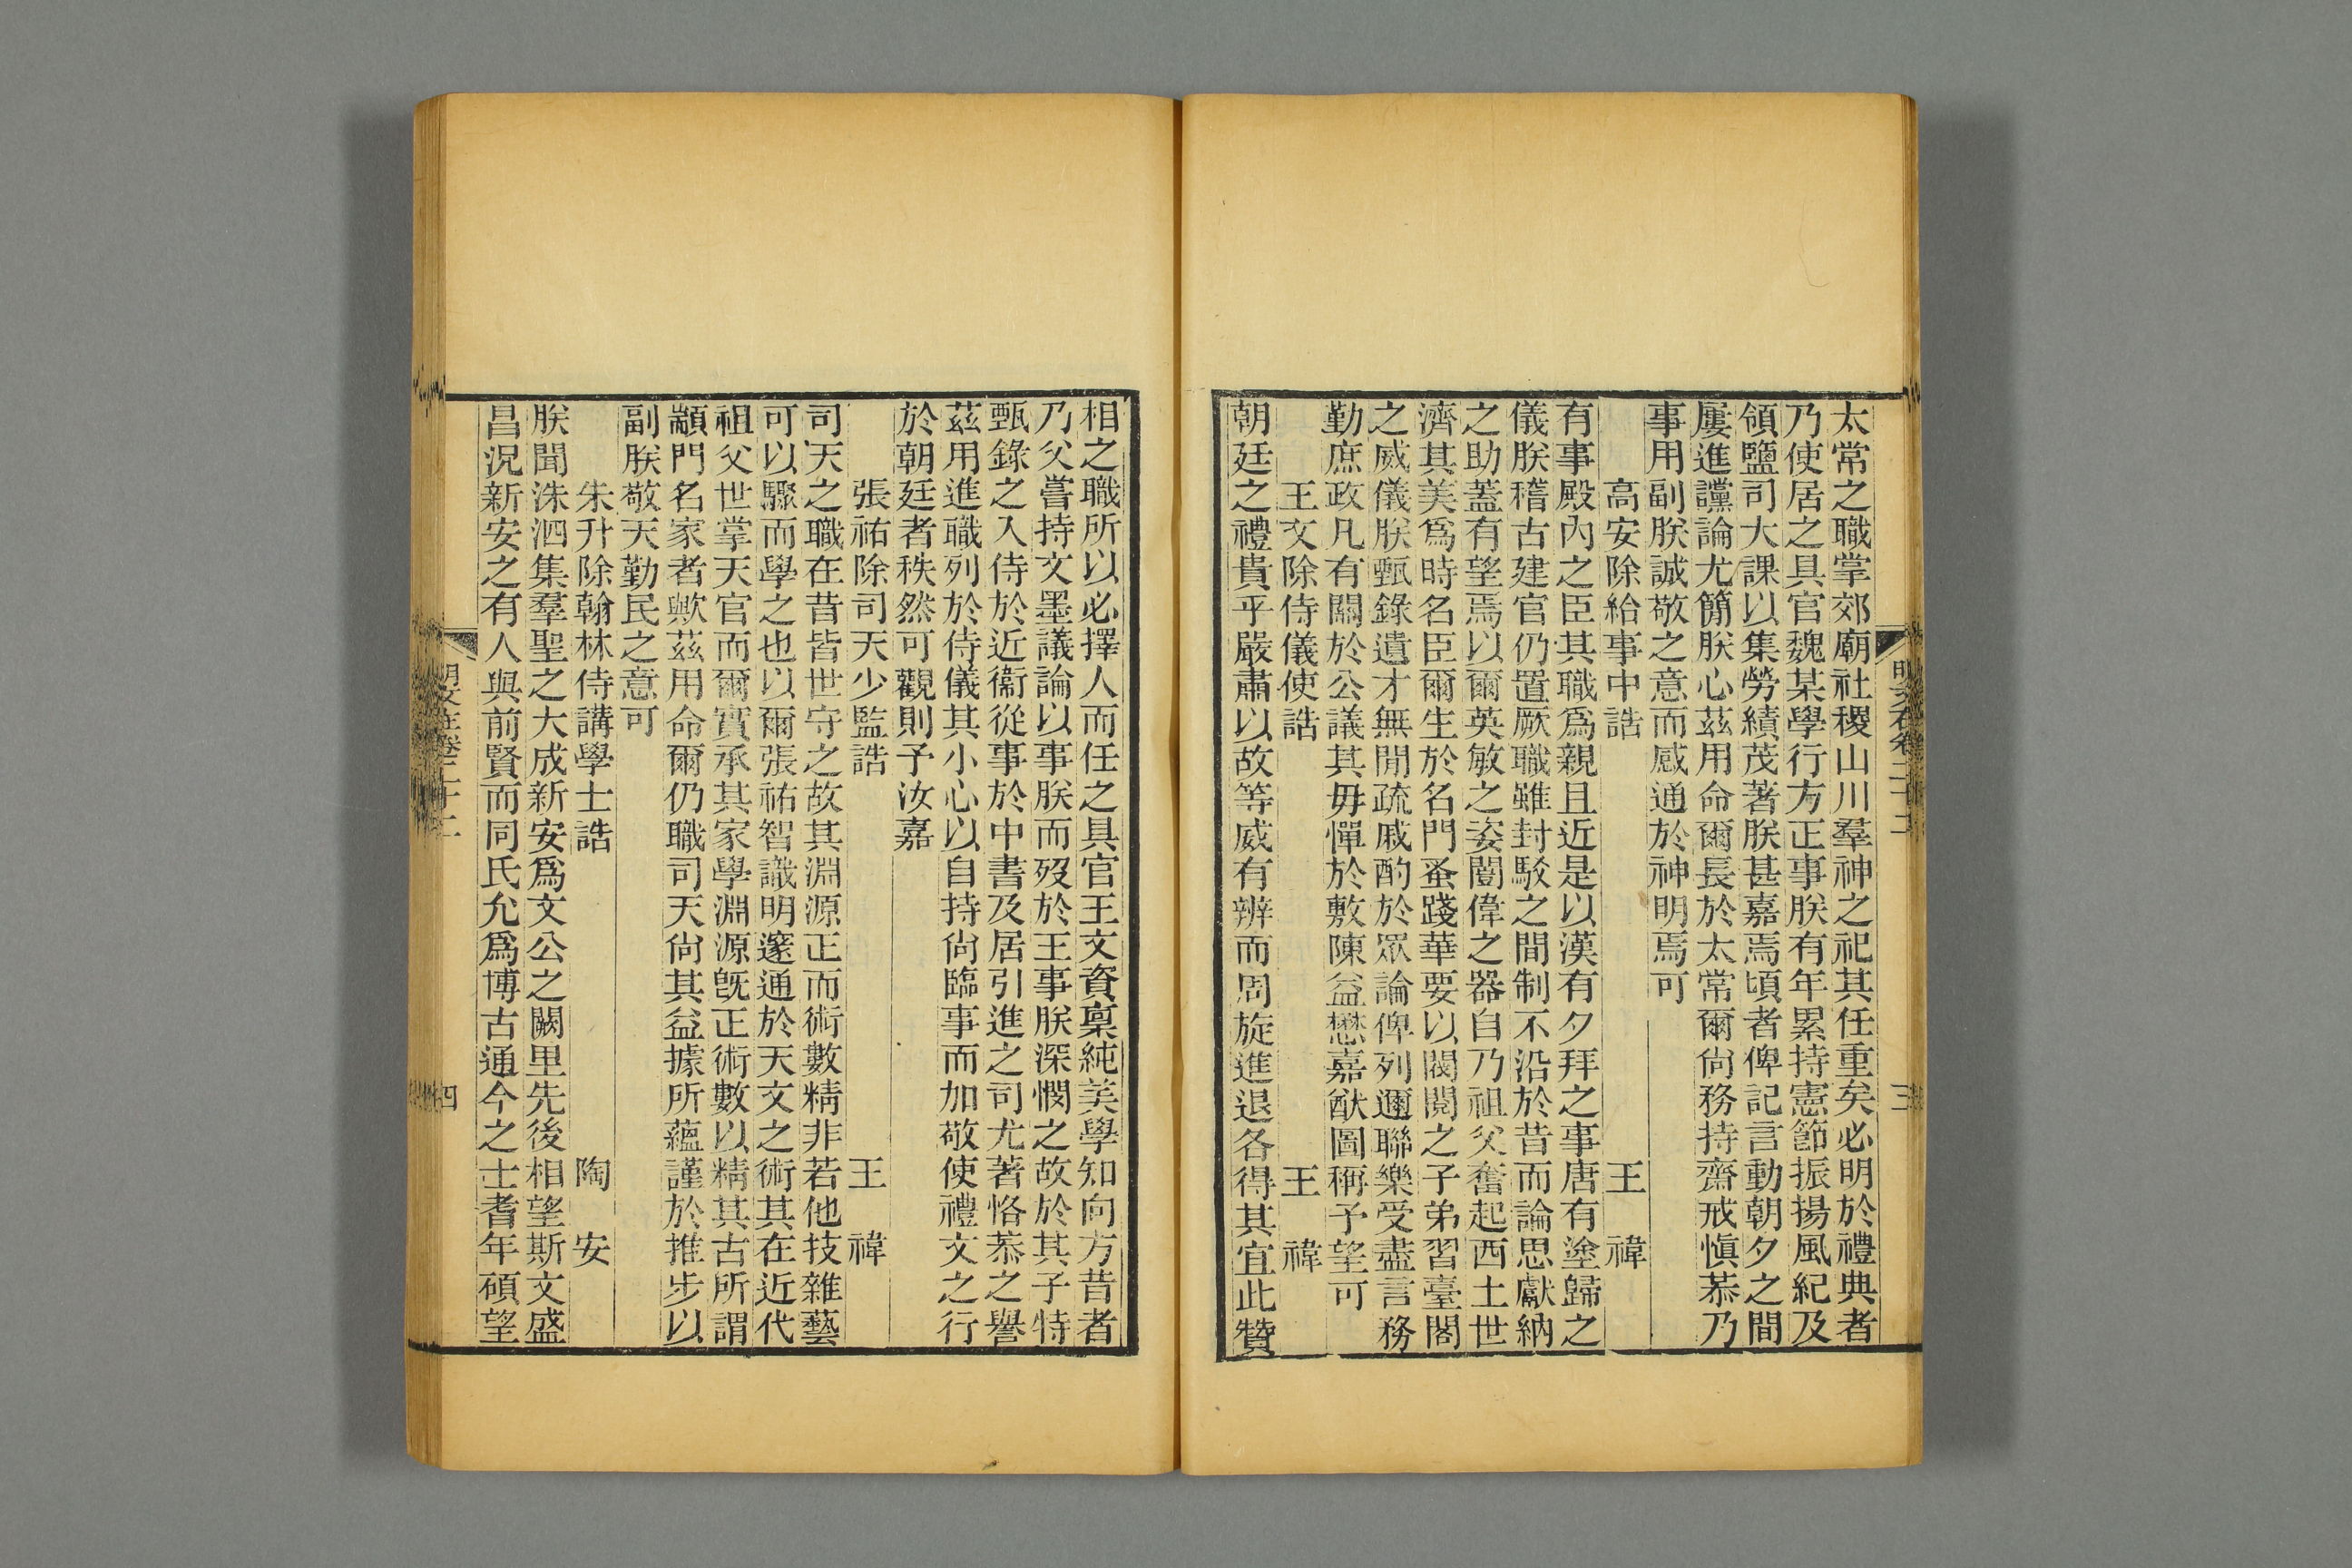 太常之職掌郊廟社稷山川羣神之祀其任重矣必明於禮典者
乃使居之具官魏某學行方正事朕有年累持憲節振揚風紀及
領鹽司大課以集勞績茂著朕甚嘉焉頃者俾記言動朝夕之間
屢進讜論尤簡朕心茲用命爾長於太常爾尙務持齋戒愼恭乃
事用副朕誠敬之意而感通於神明焉可
高安除給事中誥 王禕
有事殿內之臣其職爲親且近是以漢有夕拜之事唐有塗歸之
儀朕稽古建官仍置厥職雖封駁之間制不沿於昔而論思獻納
之助蓋有望焉以爾英敏之姿閎偉之器自乃祖父奮起西土世
濟其美爲時名臣爾生於名門蚤踐華要以閥閱之子弟習臺閣
之威儀朕甄錄遺才無閒疏戚酌於眾論俾列邇聯樂受盡言務
勤庶政凡有關於公議其毋憚於敷陳益懋嘉猷圖稱予望可
王文除侍儀使誥 王禕
朝廷之禮貴乎嚴肅以故等威有辨而周旋進退各得其宜此贊
相之職所以必擇人而任之具官王文資稟純美學知向方昔者
乃父嘗持文墨議論以事朕而歿於王事朕深憫之故於其子特
甄錄之入侍於近衞從事於中書及居引進之司尤著恪恭之譽
茲用進職列於侍儀其小心以自持尙臨事而加敬使禮文之行
於朝廷者秩然可觀則予汝嘉
張祐除司天少監誥 王禕
司天之職在昔皆世守之故其淵源正而術數精非若他技雜藝
可以驟而學之也以爾張祐智識明邃通於天文之術其在近代
祖父世掌天官而爾實承其家學淵源旣正術數以精其古所謂
顓門名家者歟茲用命爾仍職司天尙其益據所蘊謹於推步以
副朕敬天勤民之意可
朱升除翰林侍講學士誥 陶安
朕聞洙泗集羣聖之大成新安爲文公之闕里先後相望斯文盛
昌況新安之有人與前賢而同氏允爲博古通今之士耆年碩望
明文在卷二十二 三
明文在卷二十二 四